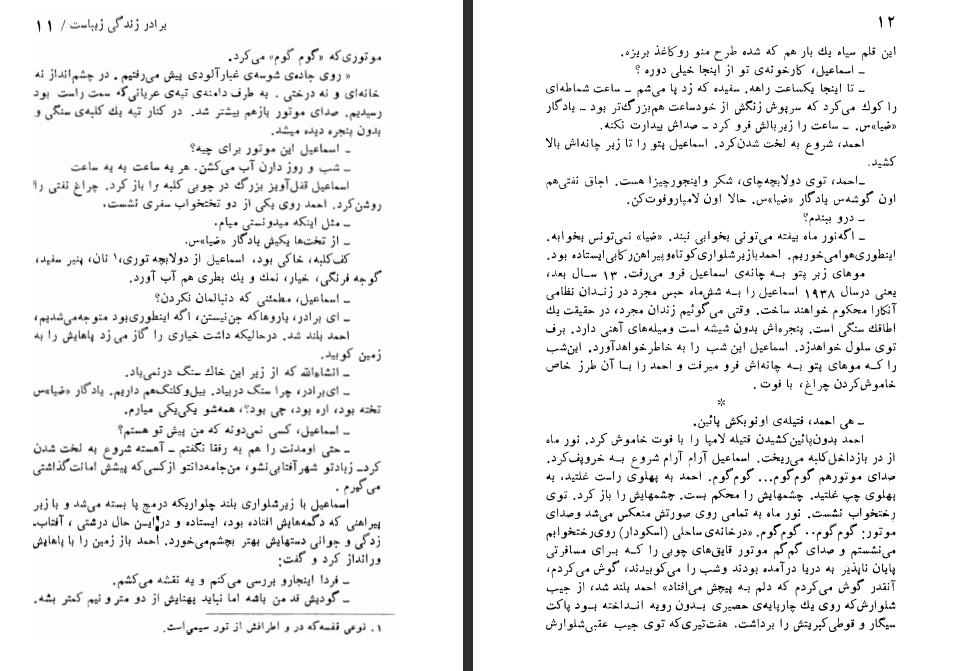 برادر زندگی زیباست / ۱۱
موتوری‌که «گوم گوم» می‌کرد.
« روی جاده‌ی شوسه‌ی غبارآلودی پیش می‌رفتیم . در چشم‌انداز نه
خانه‌ای و نه درختی . به طرف دامنه‌ی تپه‌ی عریانی‌که سمت راست بود
رسیدیم. صدای موتور بازهم بیشتر شد. در کنار تپه یك کلبه‌ی سنگی و
بدون پنجره دیده میشد.
ـ اسماعیل این موتور برای چیه؟
ـ شب و روز دارن آب می‌کشن. هر یه ساعت به یه ساعت
اسماعیل قفل‌آویز بزرگ در چوبی کلبه را باز کرد. چراغ نفتی را
روشن‌کرد. احمد روی یکی از دو تختخواب سفری نشست.
ـ مثل اینکه میدونستی میام.
ـ از تخت‌ها یکیش یادگار «ضیا»س.
کف‌کلبه، خاکی بود، اسماعیل از دولابچه توری،۱ نان، پنیر سفید،
گوجه فرنگی، خیار، نمك و یك بطری هم آب آورد.
ـ اسماعیل، مطمئنی که دنبالمان نکردن؟
ـ ای برادر، یاروها‌که جن‌نیستن، اگه اینطوری‌بود متوجه‌می‌شدیم،
احمد بلند شد. درحالیکه داشت خیاری را گاز می‌زد پاهایش را به
زمین کوبید.
ـ انشاءالله که از زیر این خاك سنگ درنمی‌یاد.
ـ ای‌برادر، چرا سنگ دربیاد. بیل‌وکلنگ‌هم داریم. یادگار «ضیا»س
تخته بود، اره بود، چی بود؟، همه‌شو یکی‌یکی میارم.
ـ اسماعیل، کسی نمی‌دونه که من پیش تو هستم؟
ـ حتی اومدنت را هم به رفقا نگفتم ـ آهسته شروع به لخت شدن
کردـ زیادتو شهرآفتابی‌نشو، من‌جامه‌دانتو ازکسی‌که پیشش امانت‌گذاشتی
می‌گیرم .
اسماعیل با زیرشلواری بلند چلواریکه درمچ پا بسته می‌شد و با زیر
پیراهنی که دگمه‌هایش افتاده بود، ایستاده و در این حال درشتی ، آفتاب.
زدگی و جوانی دستهایش بهتر بچشم‌می‌خورد. احمد باز زمین را با پاهایش
ورانداز کرد و گفت:
ـ فردا اینجارو بررسی می‌کنم و یه نقشه می‌کشم.
ـ گودیش قد من باشه اما نباید پهنایش از دو مترو نیم کمتر بشه.
۱. نوعی قفسه‌که در و اطرافش از تور سیمی‌است.
۱۲
این قلم سیاه یك بار هم که شده طرح منو روکاغذ بریزه.
ـ اسماعیل، کارخونه‌ی تو از اینجا خیلی دوره ؟
ـ تا اینجا یکساعت راهه. سفیده که زد پا می‌شم ـ ساعت شماطه‌ای
را کوك می‌کرد که سرپوش زنگش از خودساعت هم‌بزرگ‌تر بود ـ یادگار
«ضیا»س. ـ ساعت را زیربالش فرو کرد ـ صداش بیدارت نکنه.
احمد، شروع به لخت شدن‌کرد. اسماعیل پتو را تا زیر چانه‌اش بالا
کشید.
ـ احمد، توی دولابچه‌چای، شکر واینجورچیزا هست. اجاق نفتی‌هم
اون گوشه‌س یادگار «ضیا»س. حالا اون لامپاروفوت‌کن.
ـ درو ببندم؟
ـ اگه‌نور ماه بیفته می‌تونی بخوابی نبند. «ضیا» نمی‌تونس بخوابه.
اینطوری‌هوامی‌خوریم. احمدبازیرشلواری‌کوتاه‌وپیراهن‌رکابی‌ایستاده بود.
موهای زبر پتو بـه چانه‌ی اسماعیل فرو می‌رفت. ۱۳ سـال بعد،
یعنی درسال ۱۹۳۸ اسماعیل را بـه شش‌ماه حبس مجرد در زنـدان نظامی
آنکارا محکوم خواهند ساخت. وقتی می‌گوئیم زندان مجرد، در حقیقت یك
اطاقك سنگی است. پنجره‌اش بدون شیشه است ومیله‌های آهنی دارد. برف
توی سلول خواهدزد. اسماعیل این شب را به خاطرخواهدآورد. این‌شب
را کـه موهای پتو بـه چانه‌اش فرو میرفت و احمد را بـا آن طرز خاص
خاموش‌کردن چراغ، با فوت .
*
ـ هی احمد، فتیله‌ی اونوبکش پائین.
احمد بدون‌پائین‌کشیدن فتیله لامپا را با فوت خاموش کرد. نور ماه
از در بازداخل‌کلبه می‌ریخت. اسماعیل آرام آرام شروع بـه خروپف‌کرد.
صدای موتورهم گوم‌گوم... گوم‌گوم. احمد به پهلوی راست غلتید، به
پهلوی چپ غلتید. چشمهایش را محکم بست. چشمهایش را باز کرد. توی
رختخواب نشست. نور ماه به تمامی روی صورتش منعکس می‌شد وصدای
موتور: گوم گوم.. گوم‌گوم. «درخانه‌ی ساحلی (اسکودار) روی‌رختخوابم
می‌نشستم و صدای گم‌گم موتور قایق‌های چوبی را کـه بـرای مسافرتی
پایان ناپذیر به دریا درآمده بودند وشب را می‌کوبیدند، گوش می‌کردم،
آنقدر گوش می‌کردم که دلم بـه پیچش می‌افتاد» احمد بلند شد، از جیب
شلوارش‌که روی یك چارپایه‌ی حصیری بـدون رویه انـداخته بـود پاکت
سیگار و قوطی‌کبریتش را برداشت. هفت‌تیری‌که توی جیب عقبی‌شلوارش